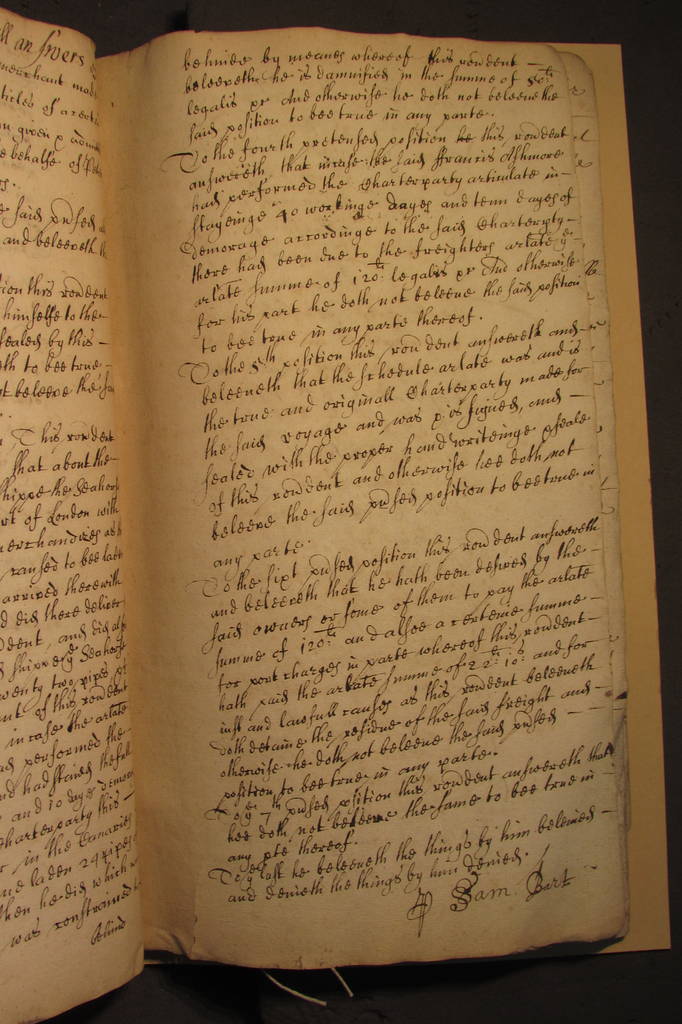 ll answers
merchant mod
ticles of a certi
n given
e behalfe of
s.
e said prnsed
and beleeveth
tion this rendent
himselfe to the
sealed by this -
th to bee true -
t beleeve the sai
This rendent
that about the
shippe the Seahors
rt of London with
merchandizes
caused to bee lade
arrived therewith
d did there deliver
dent, and did
shippe Seahors
wenty two pipes
nt of this rendent
in case the arlate
had performed the
nd had stained the full
and 10 days demor
charterparty this -
r in the Canaries
ne laden 24 pipes
hen he did which
was constrained
behind
behinde by meanes whereof this rendent -
beleeveth he is damnified in the summe of 50 li
legalis pr And otherwise he doth not beleeve the
said position to bee true in any parte.
To the fourth pretensed position he this rendent
answereth that in case the said Francis Ashmore
had performed the Charterparty articulate in -
stayeinge 40 workinge dayes and tenn dayes of
demorage accordinge to the said Charterpty -
there had been due to the freighters arlate ye -
arlate summe of 120 li legalis pr And otherwise
for his parte he doth not beleeve the said position
to bee true in any parte thereof.
To the 5th position this rendent answereth and -
beleeveth that the schedule arlate was and is
the true and originall Charterparty made for
the said voyage and was signed, and -
sealed with the proper handwriteinge seale
of this rendent and otherwise hee doth not
beleeve the said prnsed position to bee true in
any parte.
To the sixt prnsed position this rendent answereth
and beleeveth that he hath been desired by the
said owners or some of them to pay the arlate
summe of 120 li and alsoe a certeine summe -
for port charges in parte whereof this rendent -
hath paid the arlate summe of 22 li 10 s and for
just and lawfull causes as this rendent beleeveth
doth detaine the residue of the said freight and -
otherwise he doth not beleeve the said prnsed -
position to bee true in any parte.
To ye 7th prnsed position this rendent answereth that
hee doth not beleeve the same to bee true in -
any pte thereof.
To ye last he beleeveth the things by him beleeved -
and denieth the things by him denied.
Sam Bart